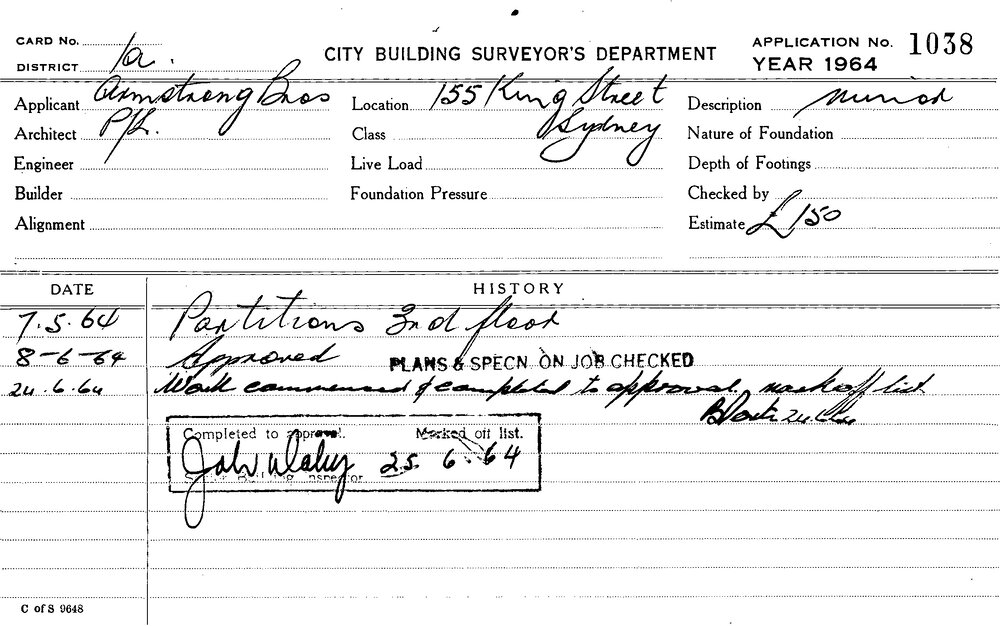 CARD No.
DISTRICT 1a.
CITY BUILDING SURVEYOR'S DEPARTMENT
APPLICATION No. 1038
YEAR 1964
Applicant Armstrong Bros
Location 155 King Street
Description minor
Architect P/L.
Class Sydney
Nature of Foundation
Engineer
Live Load
Depth of Footings
Builder
Foundation Pressure
Checked by
Alignment
Estimate £150
DATE
HISTORY
7.5.64 Partitions 3rd floor
8-6-64 Approved PLANS & SPECN. ON JOB CHECKED
24.6.64 Work commenced & completed to approval, mark off list.
Completed to approval. Marked off list.
25 6 64
Building Inspector
C of S 9648